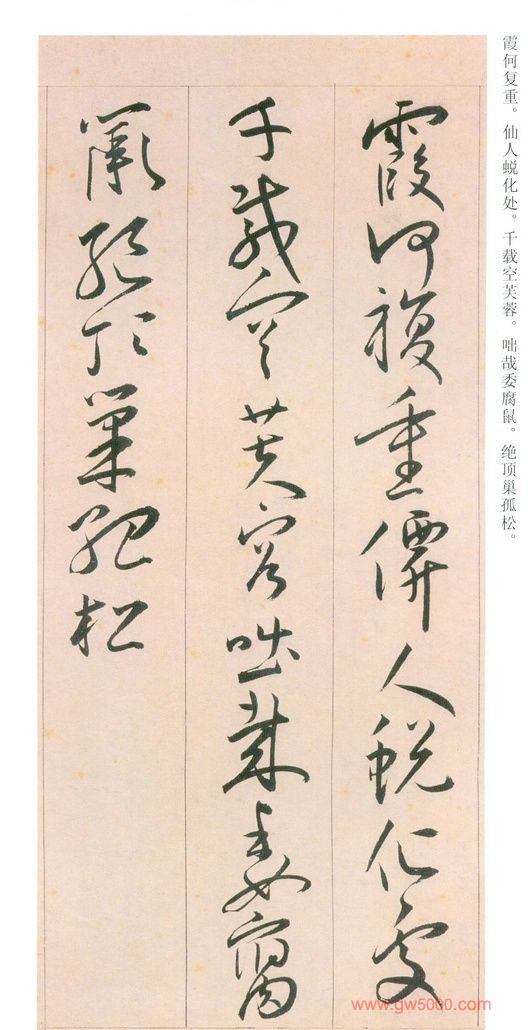 霞何复重。仙人蜕化处。千载空芙蓉。咄哉委腐鼠。绝顶巢孤松。
霞何複重僊人蛻化處
千載空芙容咄哉委腐
鼠絕頂巢孤松
www.gw5000.com